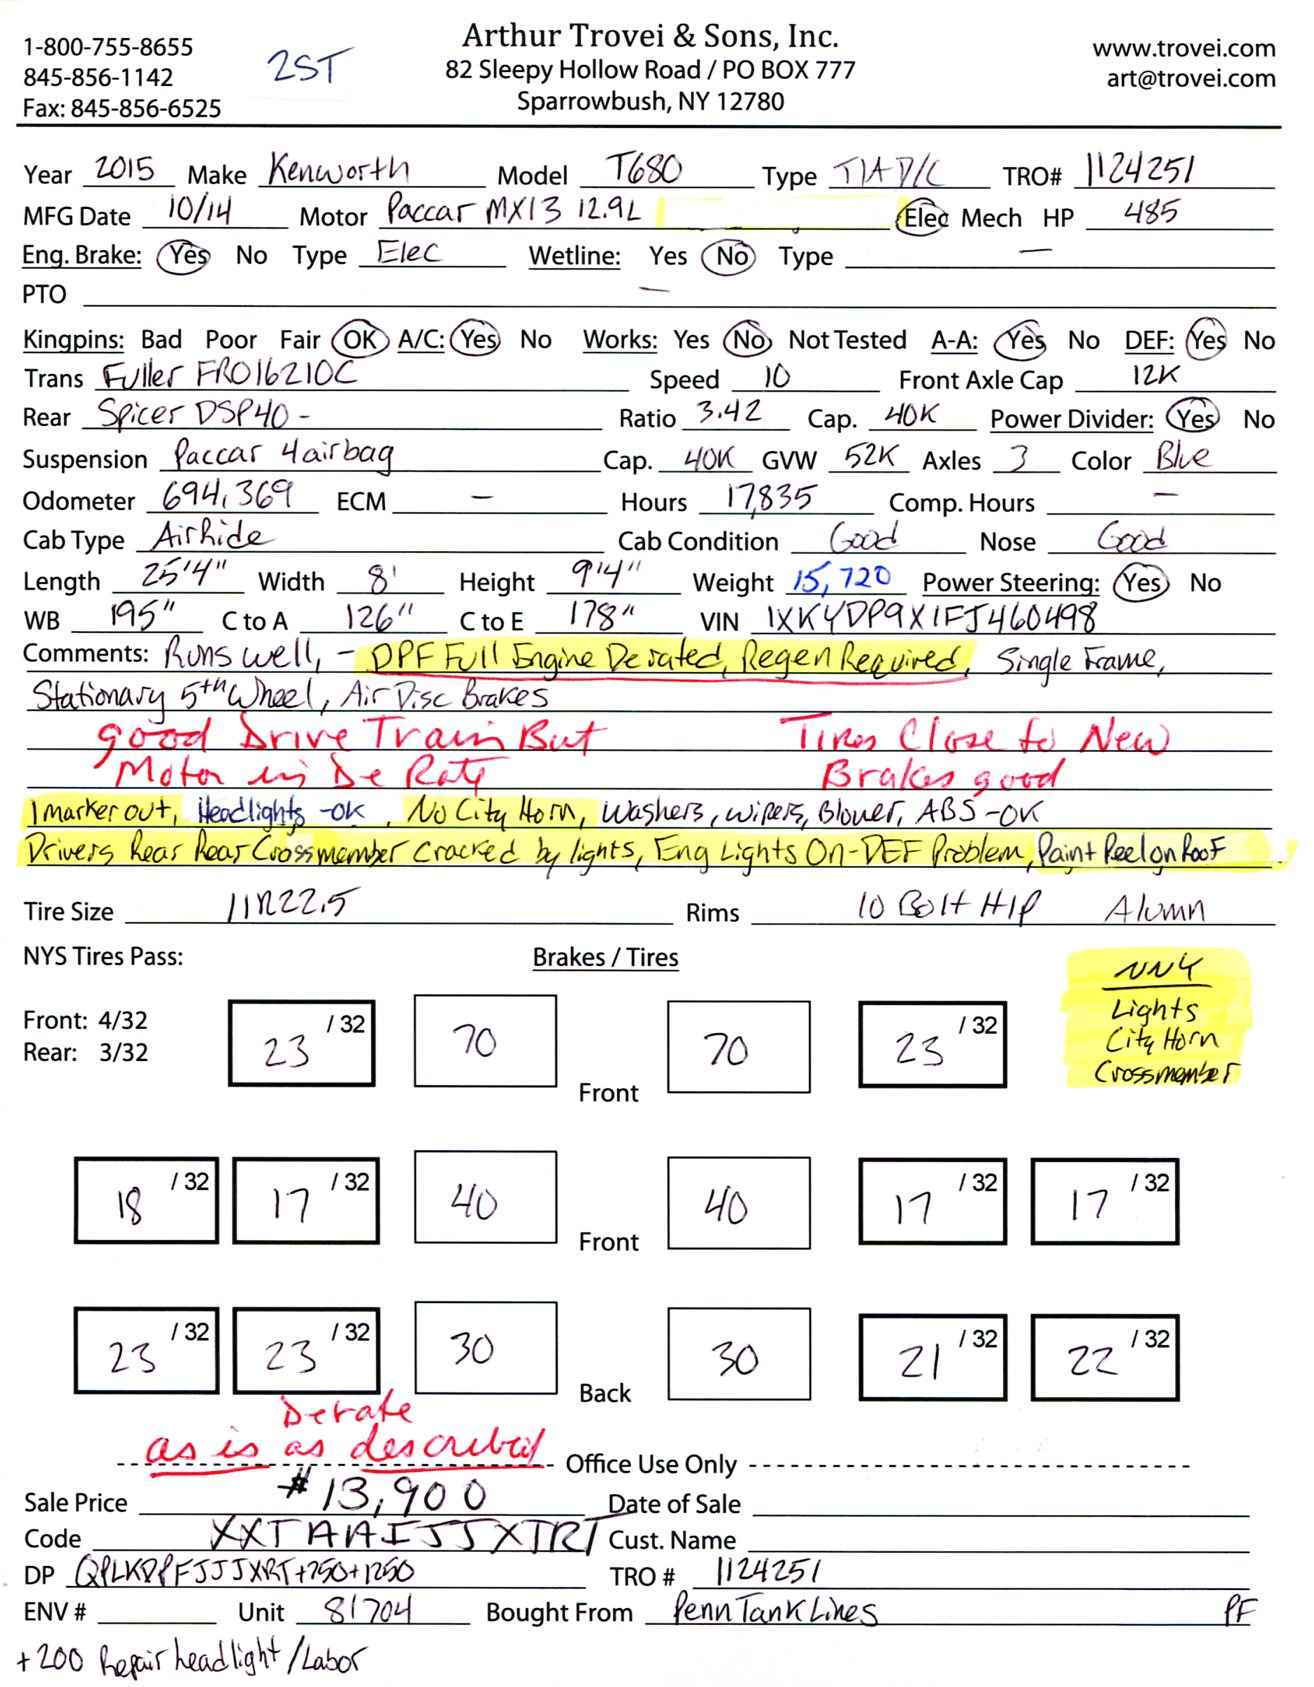 Arthur Trovei & Sons, Inc.
82 Sleepy Hollow Road / PO BOX 777
Sparrowbush, NY 12780
1-800-755-8655
845-856-1142
Fax: 845-856-6525
2ST
www.trovei.com
art@trovei.com
Year 2015 Make Kenworth Model T680 Type T/A D/C TRO# 1124251
MFG Date 10/14 Motor Paccar MX13 12.9L Elec Mech HP 485
Eng. Brake: Yes No Type Elec Wetline: Yes No Type —
PTO —
Kingpins: Bad Poor Fair OK A/C: Yes No Works: Yes No Not Tested A-A: Yes No DEF: Yes No
Trans Fuller FRO16210C Speed 10 Front Axle Cap 12K
Rear Spicer DSP40- Ratio 3.42 Cap. 40K Power Divider: Yes No
Suspension Paccar 4airbag Cap. 40K GVW 52K Axles 3 Color Blue
Odometer 694,369 ECM — Hours 17,835 Comp. Hours —
Cab Type AirRide Cab Condition Good Nose Good
Length 25'4" Width 8' Height 9'4" Weight 15,720 Power Steering: Yes No
WB 195" C to A 126" C to E 178" VIN 1XKYDP9X1FJ460498
Comments: Runs well, - DPF Full Engine Derated, Regen Required, Single Frame,
Stationary 5th Wheel, Air Disc Brakes
good Drive Train But Tires Close to New
Motor in De Rate Brakes good
1 marker out, Headlights -OK, No City Horn, Washers, wipers, Blower, ABS -OK
Drivers Rear Rear Crossmember cracked by lights, Eng Lights On-DEF Problem, Paint Peel on Roof
Tire Size 11R22.5 Rims 10 Bolt H/P Alumn
NYS Tires Pass: Brakes / Tires
NNY
Lights
City Horn
Crossmember
Front: 4/32
Rear: 3/32
23 /32 70 70 23 /32
Front
18 /32 17 /32 40 40 17 /32 17 /32
Front
23 /32 23 /32 30 30 21 /32 22 /32
Back
Derate
as is as described
Office Use Only
Sale Price #13,900 Date of Sale
Code XXTAAIJJXTRT Cust. Name
DP QPLKDPFJJJXRT+750+1250 TRO # 1124251
ENV # Unit 81704 Bought From Penn Tank Lines PF
+200 Repair headlight/Labor